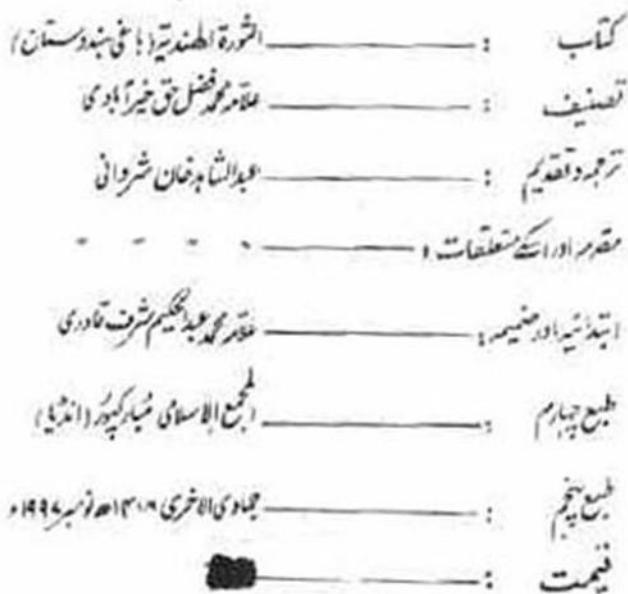 کتاب : الثورة الهندية (باغی ہندوستان)
تصنیف : علامہ محمد فضل حق خیرآبادی
ترجمہ و تقدیم : عبدالشاہد خان شروانی
مقدمہ اور اسکے متعلقات : " " " "
ابتدائیہ اور ضمیمہ : علامہ محمد عبدالحکیم شرف قادری
طبع چہارم : المجمع الاسلامی مبارکپور (انڈیا)
طبع پنجم : جمادی الاخریٰ ھ نومبر ۱۹۹۷ء
قیمت :